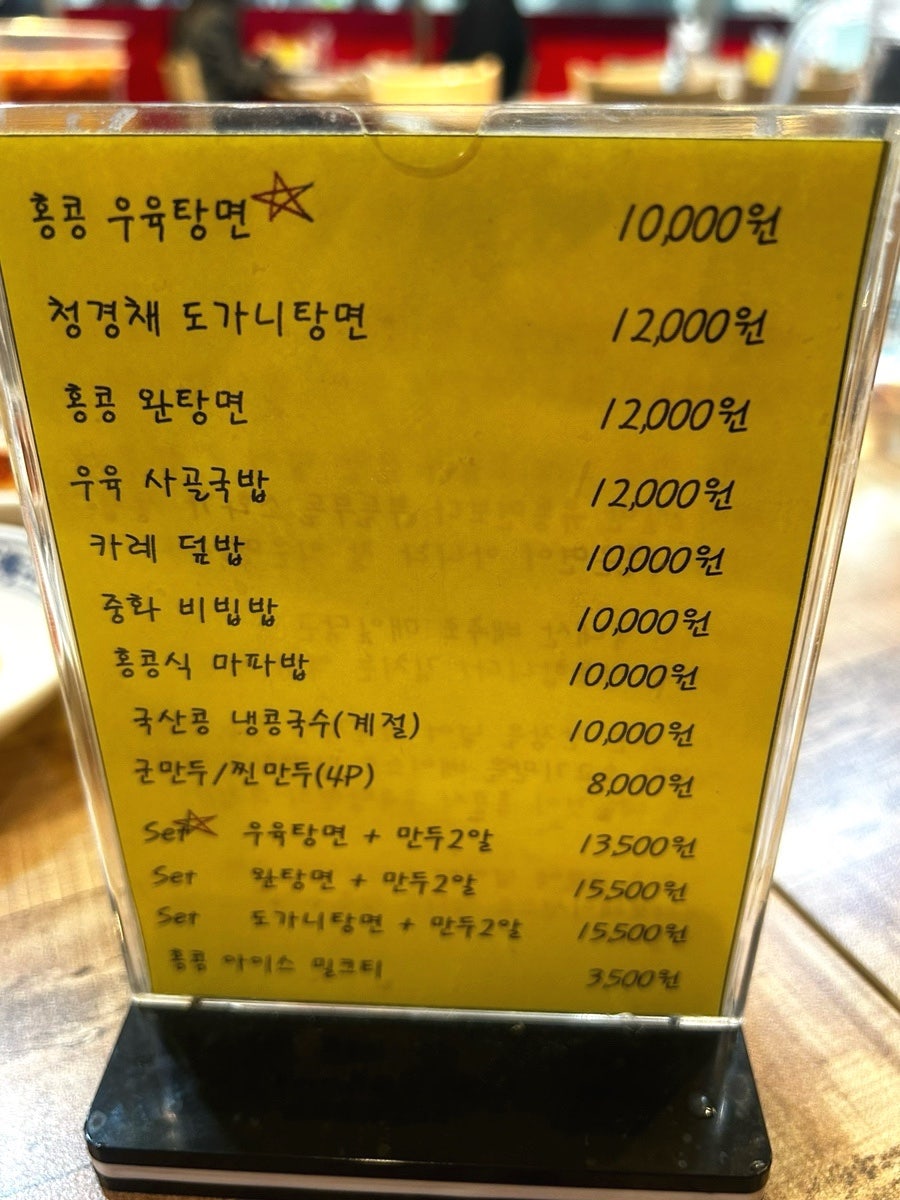 홍콩 우육탕면 10,000원
청경채 도가니탕면 12,000원
홍콩 완탕면 12,000원
우육 사골국밥 12,000원
카레 덮밥 10,000원
중화 비빔밥 10,000원
홍콩식 마파밥 10,000원
국산콩 냉콩국수(계절) 10,000원
군만두/찐만두(4P) 8,000원
Set 우육탕면 + 만두2알 13,500원
Set 완탕면 + 만두2알 15,500원
Set 도가니탕면 + 만두2알 15,500원
홍콩 아이스 밀크티 3,500원